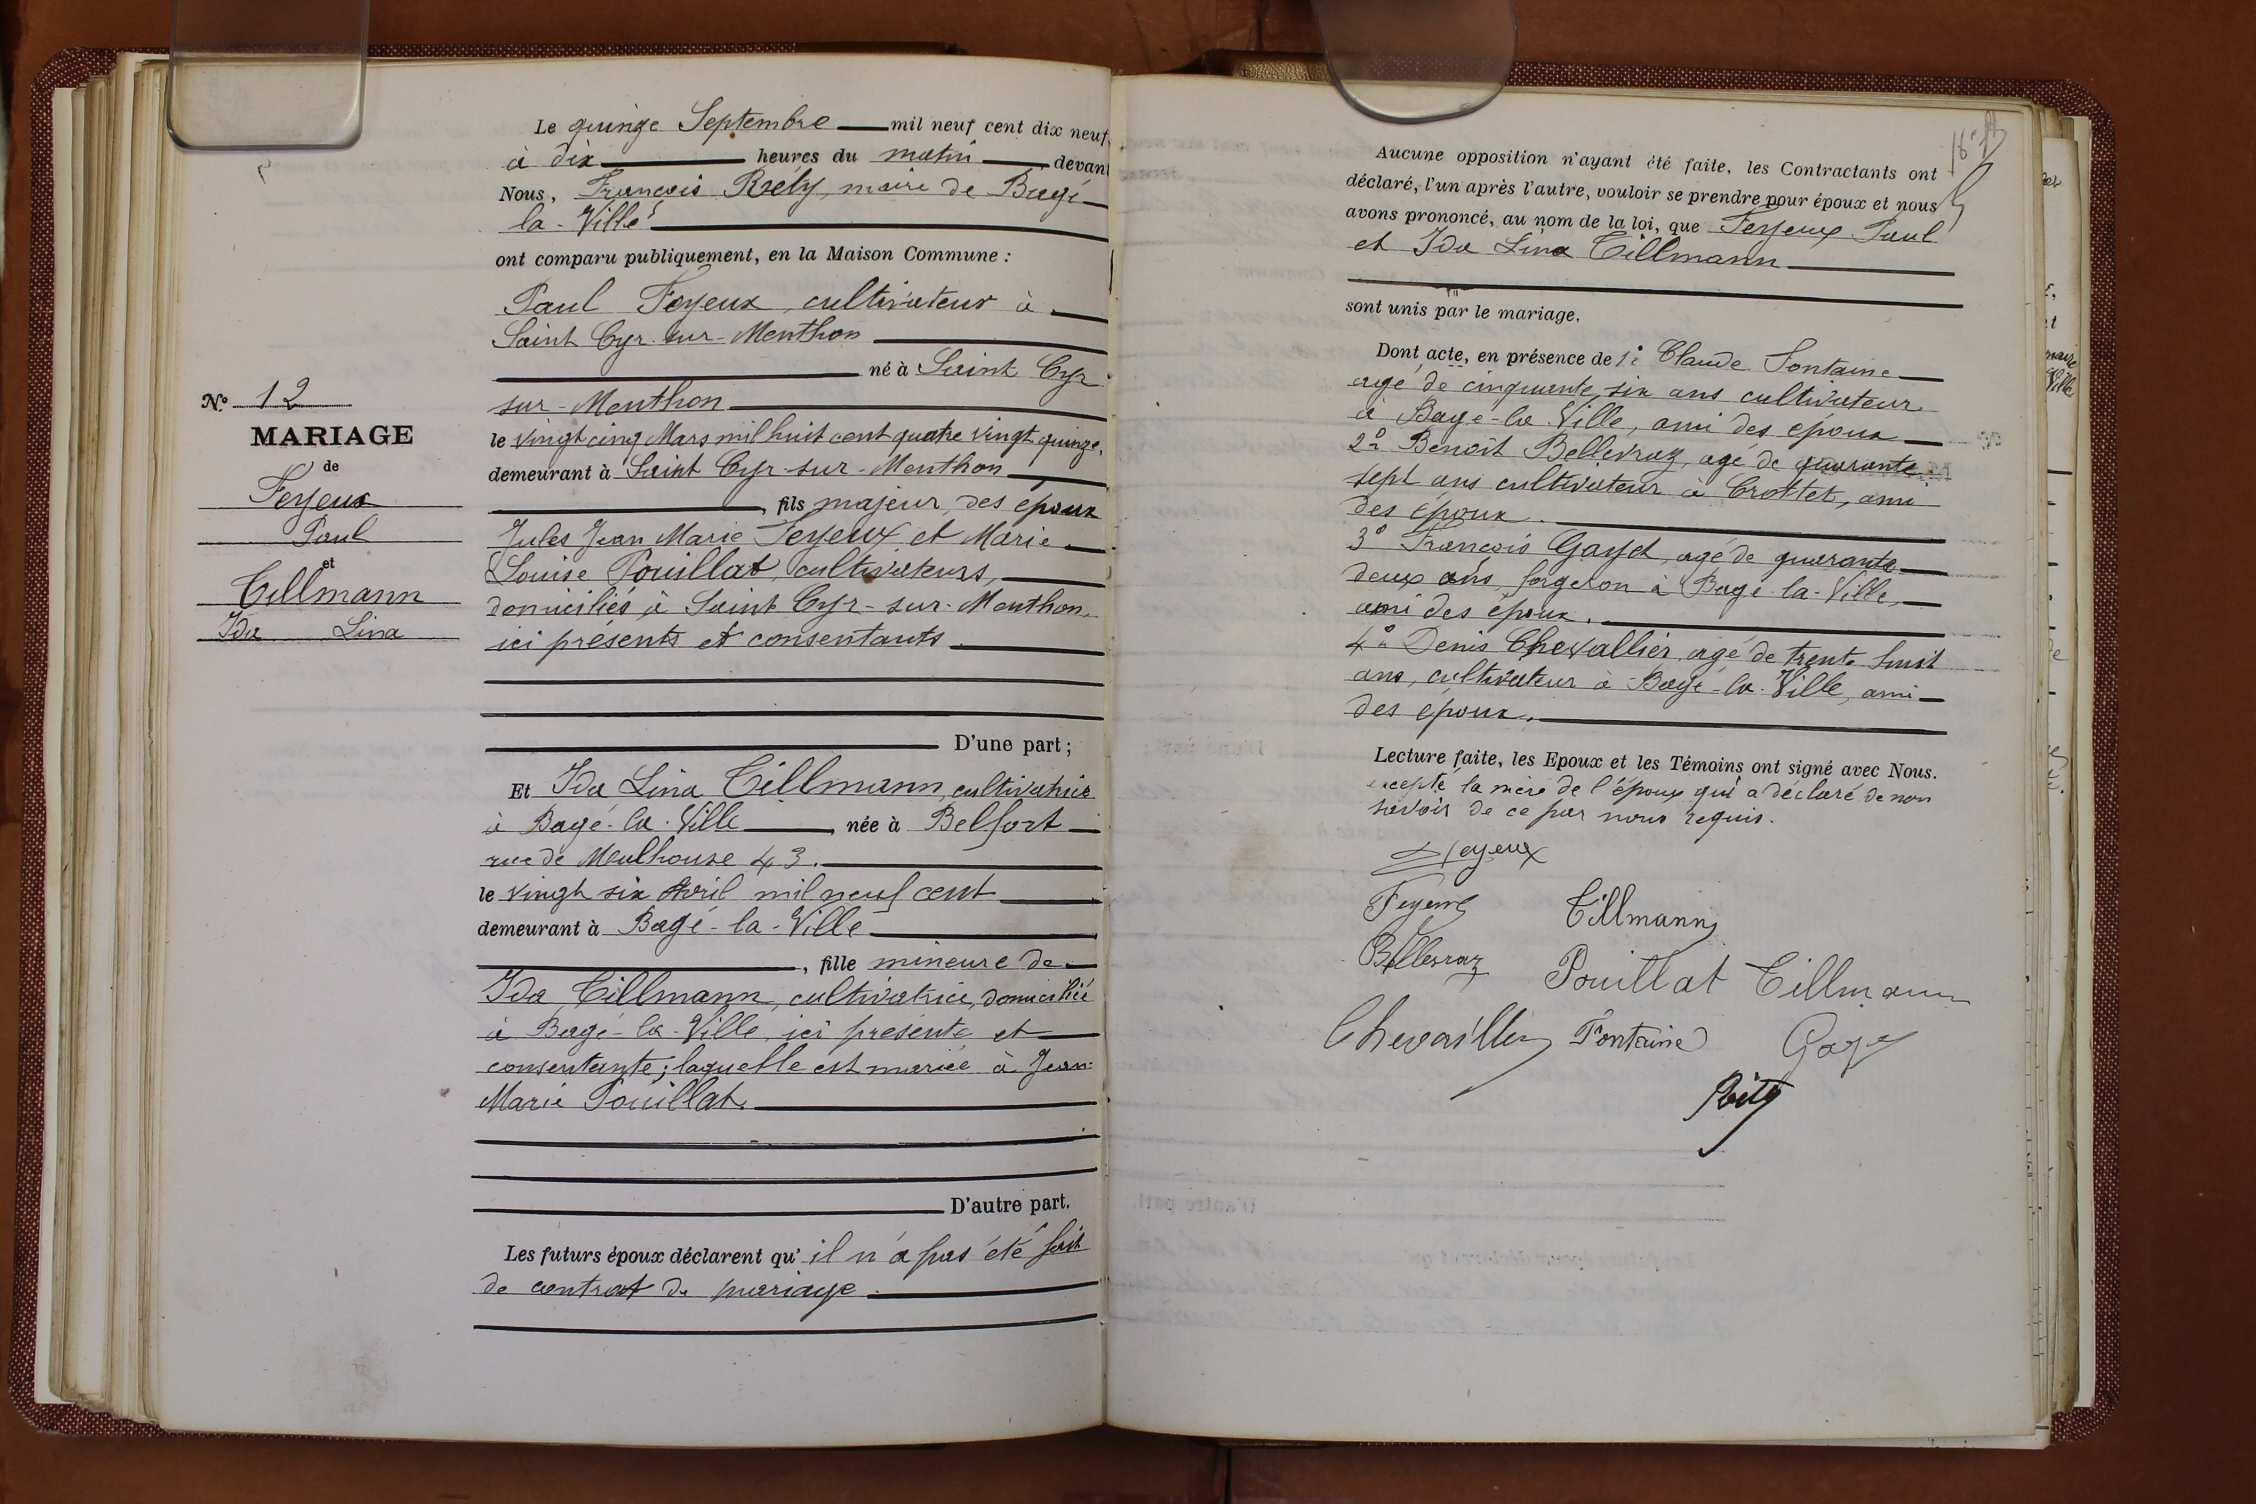 Le quinze Septembre mil neuf cent dix neuf,
à dix heures du matin devant
Nous, François Réty, maire de Bagé-
la-Ville
ont comparu publiquement, en la Maison Commune :
Paul Feyeux, cultivateur à
Saint Cyr-sur-Menthon
né à Saint Cyr
sur-Menthon
le vingt cinq Mars mil huit cent quatre vingt quinze,
demeurant à Saint Cyr-sur-Menthon
, fils majeur, des époux
Jules Jean Marie Feyeux et Marie
Louise Pouillat, cultivateurs,
domiciliés à Saint Cyr-sur-Menthon,
ici présents et consentants.
D'une part ;
Et Ida Lina Tillmann, cultivatrice
à Bagé-la-Ville, née à Belfort
rue de Mulhouse 43.
le vingt six Avril mil neuf cent
demeurant à Bagé-la-Ville
, fille mineure de
Ida Tillmann, cultivatrice, domiciliée
à Bagé-la-Ville, ici présente et
consentante; laquelle est mariée à Jean-
Marie Pouillat.
D'autre part.
Les futurs époux déclarent qu'il n'a pas été fait
de contrat de mariage.
No 12
MARIAGE
de
Feyeux
Paul
et
Tillmann
Ida Lina
Aucune opposition n'ayant été faite, les Contractants ont
déclaré, l'un après l'autre, vouloir se prendre pour époux et nous
avons prononcé, au nom de la loi, que Feyeux Paul
et Ida Lina Tillmann
sont unis par le mariage.
Dont acte, en présence de 1º Claude Fontaine
agé de cinquante six ans cultivateur
à Bagé-la-Ville, ami des époux
2º Benoît Bellevraz, agé de quarante
sept ans cultivateur à Crottet, ami
des époux.
3º François Gayet, agé de quarante
deux ans, forgeron à Bagé-la-Ville,
ami des époux.
4º Denis Chevallier, agé de trente huit
ans, cultivateur à Bagé-la-Ville, ami
des époux.
Lecture faite, les Epoux et les Témoins ont signé avec Nous.
excepté la mère de l'époux qui a déclaré de non
savoir de ce par nous requis.
Feyeux
Feyeux Tillmann
Bellevraz Pouillat Tillmann
Chevaillier Fontaine Gayet
Réty